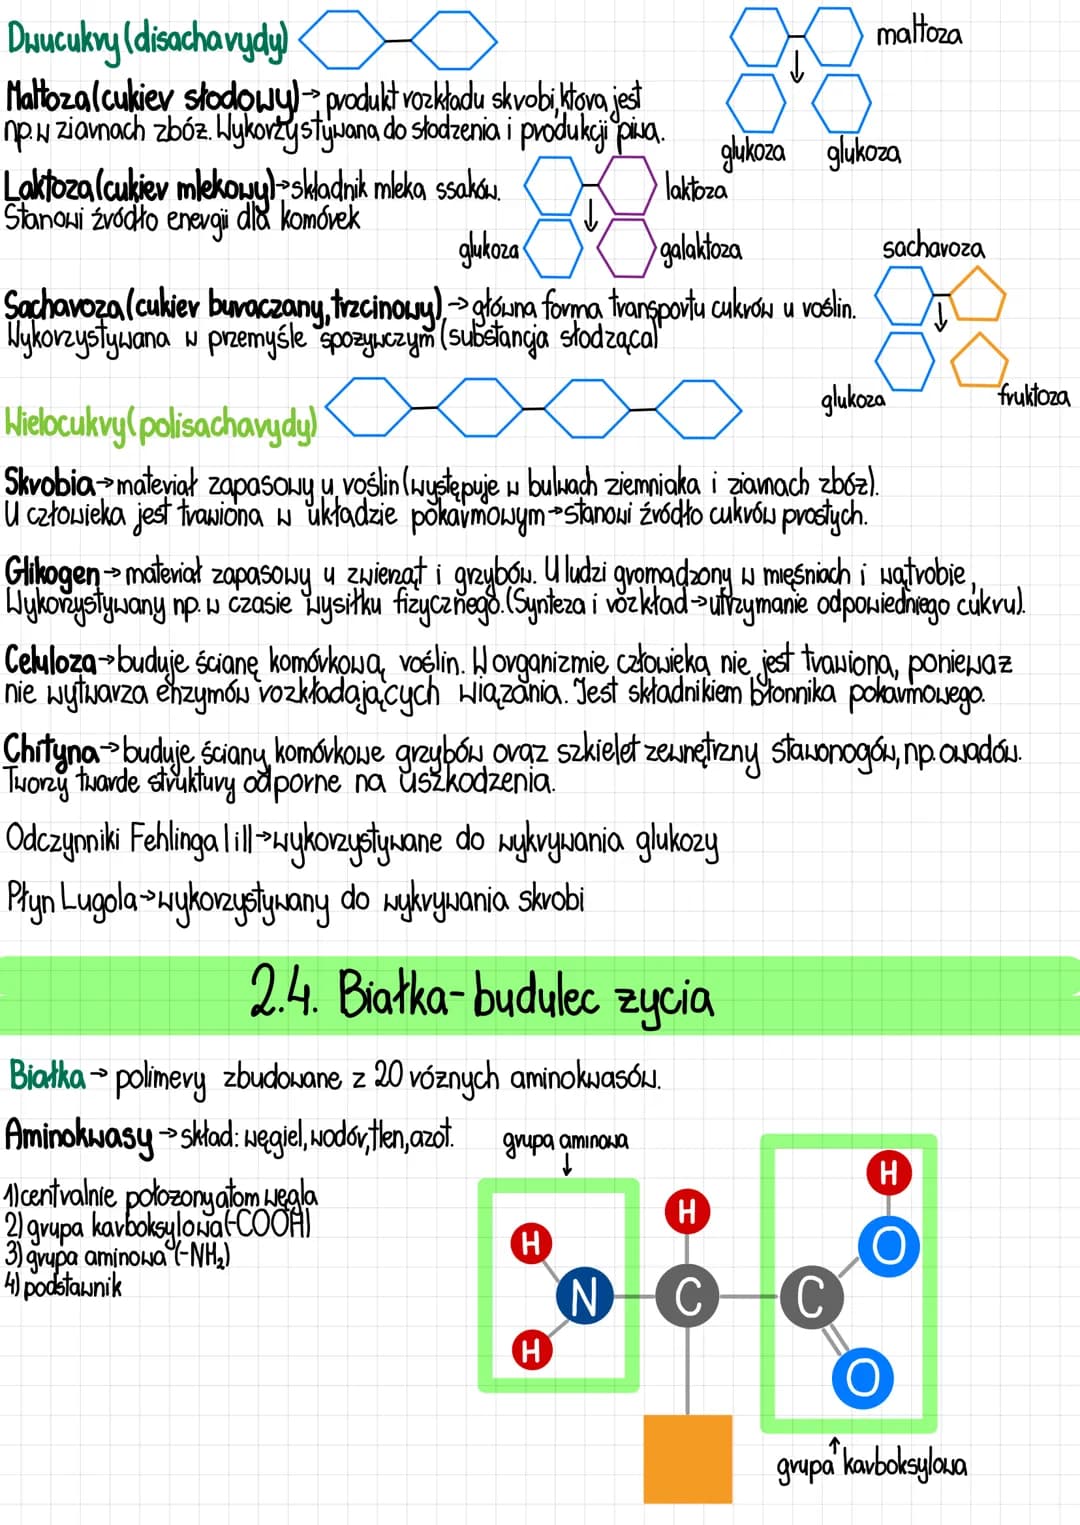 Dwucukry (disacharydy)
maltoza
Maltoza (cukier słodowy) → produkt rozkładu skrobi, która jest
np. w ziarnach zbóż. Wykorzystywana do słodzenia i produkcji piwa.
glukoza glukoza
Laktoza (cukier mlekowy) → składnik mleka ssaków.
Stanowi źródło energii dla komórek
laktoza
glukoza galaktoza
sacharoza
Sacharoza (cukier buraczany, trzcinowy) → główna forma transportu cukrów u roślin.
Wykorzystywana w przemyśle spożywczym (substancja słodząca)
glukoza fruktoza
Wielocukry (polisacharydy)
Skrobia → materiał zapasowy u roślin (występuje w bulwach ziemniaka i ziarnach zbóż).
U człowieka jest trawiona w układzie pokarmowym → stanowi źródło cukrów prostych.
Glikogen → materiał zapasowy u zwierząt i grzybów. U ludzi gromadzony w mięśniach i wątrobie,
Wykorzystywany np. w czasie wysiłku fizycznego. (Synteza i rozkład → utrzymanie odpowiedniego cukru).
Celuloza → buduje ścianę komórkową roślin. W organizmie człowieka nie jest trawiona, ponieważ
nie wytwarza enzymów rozkładających wiązania. Jest składnikiem błonnika pokarmowego.
Chityna → buduje ściany komórkowe grzybów oraz szkielet zewnętrzny stawonogów, np. owadów.
Tworzy twarde struktury odporne na uszkodzenia.
Odczynniki Fehlinga I i II → wykorzystywane do wykrywania glukozy
Płyn Lugola → wykorzystywany do wykrywania skrobi
2.4. Białka - budulec życia
Białka → polimery zbudowane z 20 różnych aminokwasów.
Aminokwasy → skład: węgiel, wodór, tlen, azot.
grupa aminowa
1) centralnie położony atom węgla
2) grupa karboksylowa (-COOH)
3) grupa aminowa (-NH₂)
4) podstawnik
H
H
H O
N C C
H
O
grupa karboksylowa